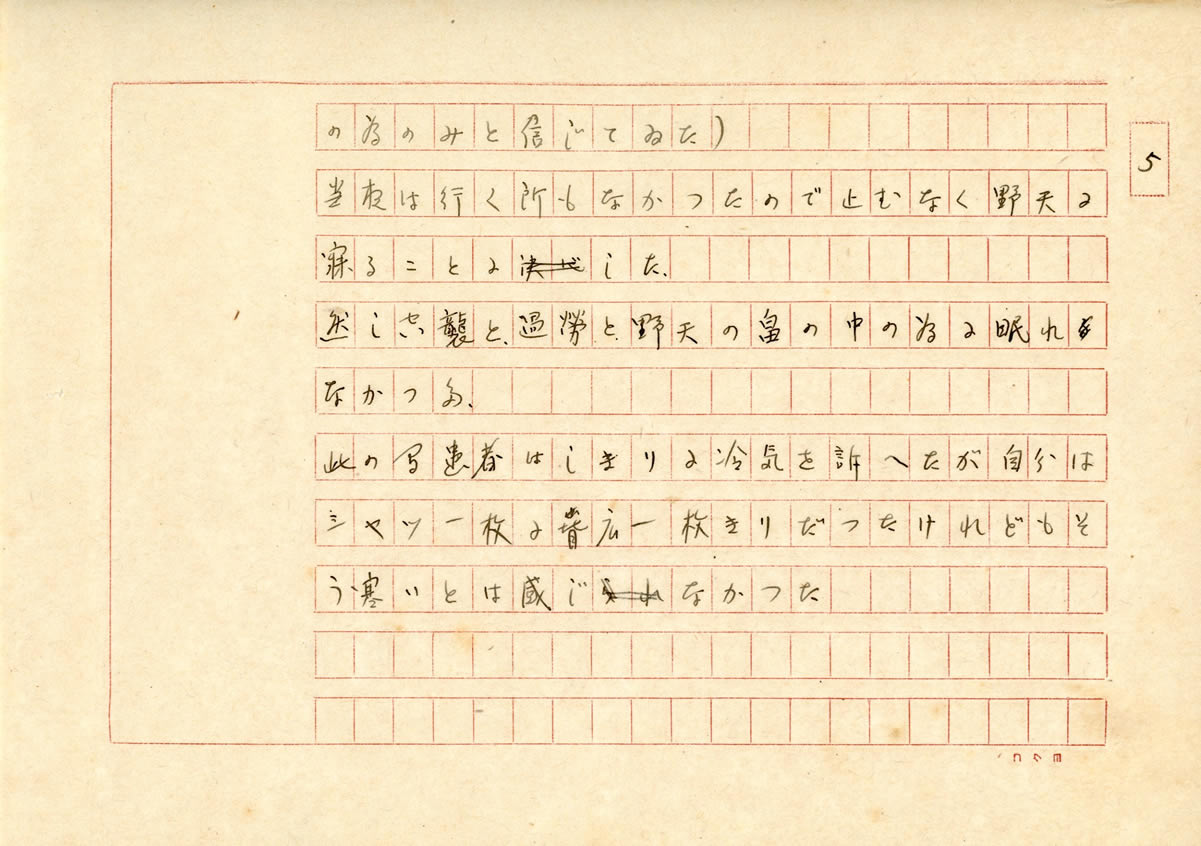 5
の為のみと信じてゐた)
当夜は行く所もなかつたので止むなく野天に
寐ることに決心した、
然し空襲と、過労と、野天の畠の中の為に眠れ
なかつた、
此の間患者はしきりに冷気を訴へたが自分は
シャツ一枚に背広一枚きりだつたけれどもそ
う寒いとは感じられなかつた